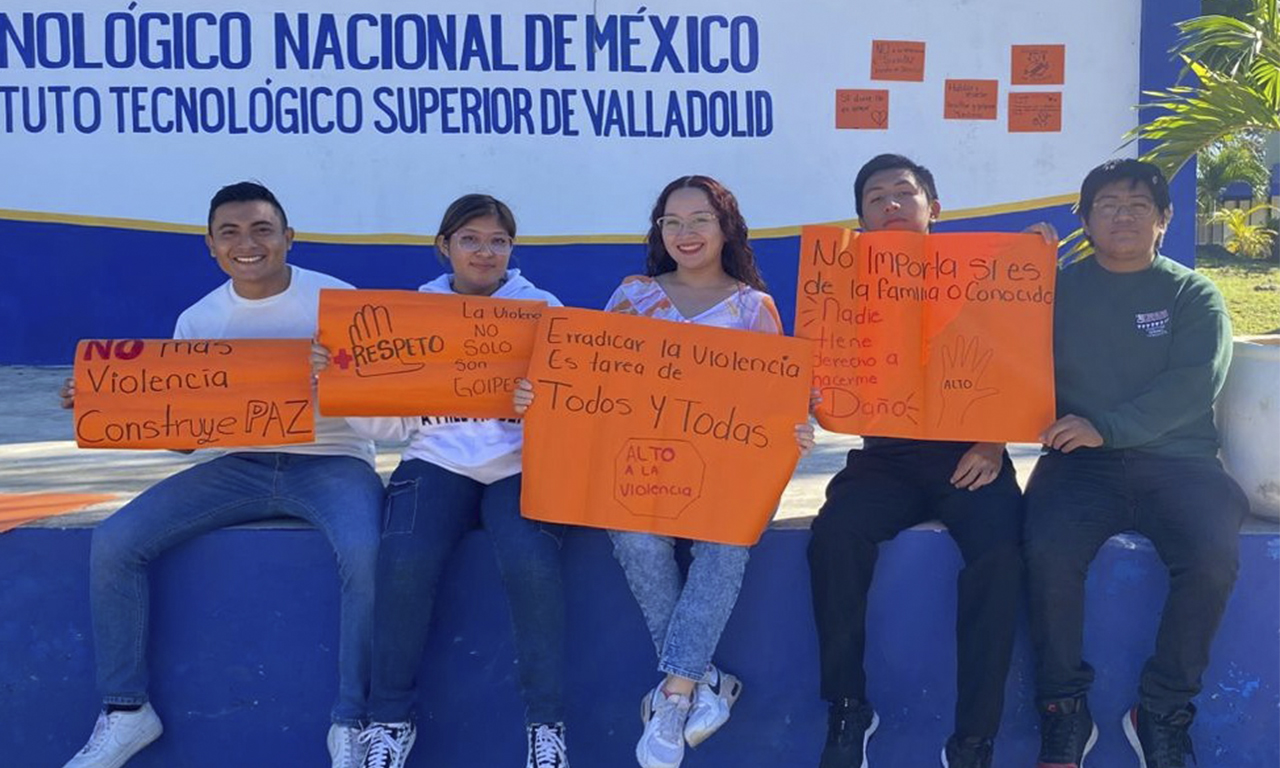 NOLÓGICO NACIONAL DE MÉXICO
TUTO TECNOLÓGICO SUPERIOR DE VALLADOLID
NO
Si duele no
es amor
NO más
Violencia
Construye PAZ
+RESPETO
La Violen
NO
SOLO
son
GOLPES
Erradicar la violencia
Es tarea de
Todos y Todas
ALTO
A LA
violencia
No importa si es
de la familia o Conocido
Nadie
tiene
derecho a
hacerme
Daño
ALTO